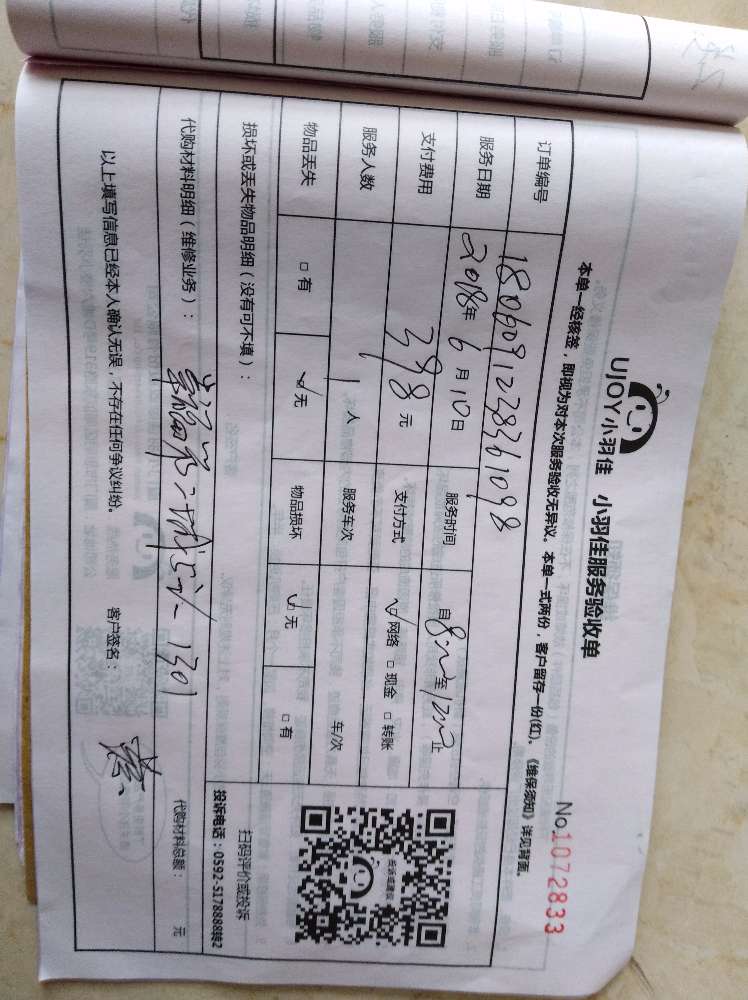 UJOY小羽佳 小羽佳服务验收单
No.1072833
本单一经核签，即视为对本次服务验收无异议。本单一式两份，客户留存一份(红)。《维保须知》详见背面。
订单编号 1806091238361098
服务日期 2018年6月10日 服务时间 自8:00至12:00止
支付费用 398元 支付方式 ☑网络 □现金 □转账
服务人数 1人 服务车次 车/次
物品丢失 □有 ☑无 物品损坏 ☑无 □有
扫码评价或投诉
投诉电话：0592-5178888转2
损坏或丢失物品明细（没有可不填）：
代购材料明细（维修业务）： 1301 代购材料总额： 元
以上填写信息已经本人确认无误，不存在任何争议纠纷。 客户签名：